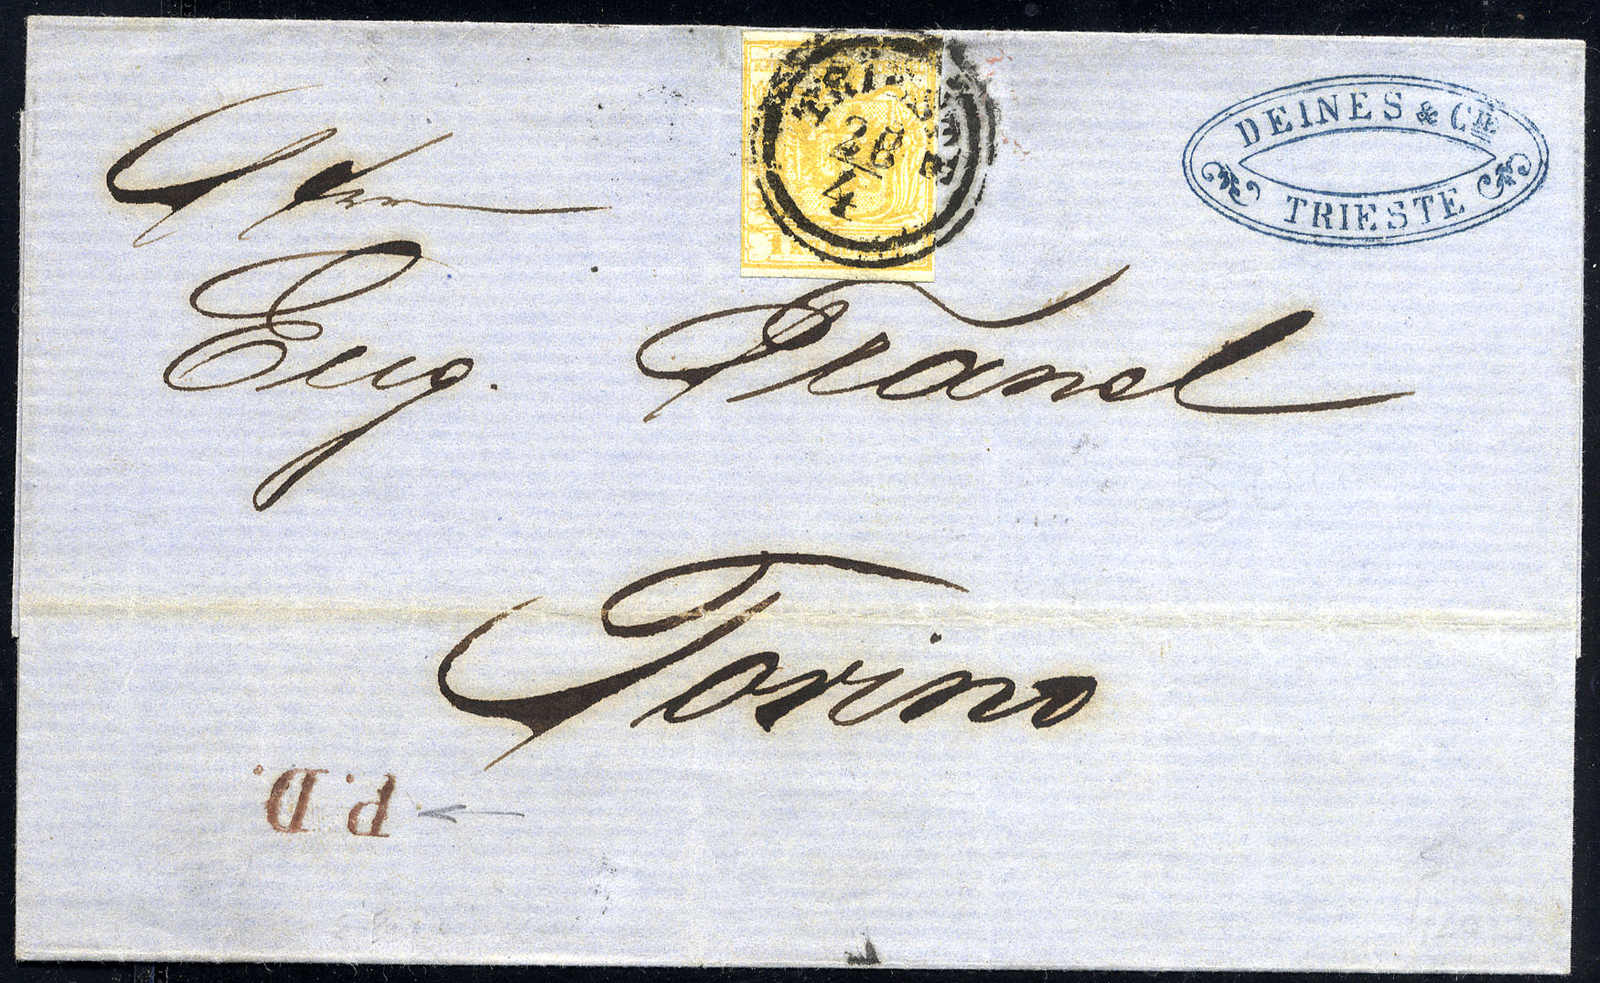 TRIESTE
28
4
DEINES & CIE
TRIESTE
Herrn
Eug. Fränel
Torino
P.D.